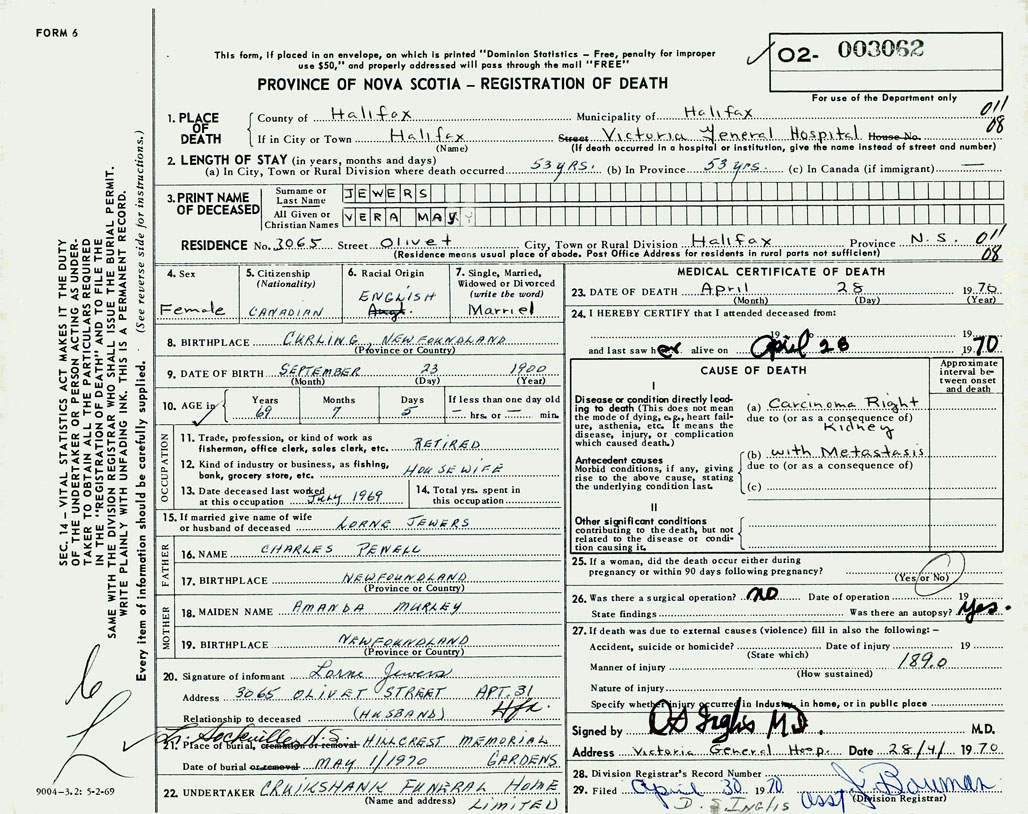 FORM 6
This form, if placed in an envelope, on which is printed "Dominion Statistics – Free, penalty for improper
use $50," and properly addressed will pass through the mail "FREE"
O2- 003062
For use of the Department only
PROVINCE OF NOVA SCOTIA – REGISTRATION OF DEATH
1. PLACE OF DEATH
County of Halifax Municipality of Halifax 011
If in City or Town Halifax Street Victoria General Hospital House No. 08
(Name) (If death occurred in a hospital or institution, give the name instead of street and number)
2. LENGTH OF STAY (in years, months and days)
(a) In City, Town or Rural Division where death occurred 53 yrs. (b) In Province 53 yrs. (c) In Canada (if immigrant) —
3. PRINT NAME OF DECEASED
Surname or Last Name JEWERS
All Given or Christian Names VERA MAY
RESIDENCE No. 3065 Street Olivet City, Town or Rural Division Halifax Province N.S. 011
(Residence means usual place of abode. Post Office Address for residents in rural parts not sufficient) 08
4. Sex Female
5. Citizenship (Nationality) CANADIAN
6. Racial Origin ENGLISH
7. Single, Married, Widowed or Divorced (write the word) Married
8. BIRTHPLACE CURLING, NEWFOUNDLAND
(Province or Country)
9. DATE OF BIRTH SEPTEMBER 23 1900
(Month) (Day) (Year)
10. AGE in Years 69 Months 7 Days 5 If less than one day old — hrs. or — min.
OCCUPATION
11. Trade, profession, or kind of work as
fisherman, office clerk, sales clerk, etc. RETIRED
12. Kind of industry or business, as fishing,
bank, grocery store, etc. HOUSEWIFE
13. Date deceased last worked
at this occupation JULY 1969
14. Total yrs. spent in
this occupation
15. If married give name of wife
or husband of deceased LORNE JEWERS
FATHER
16. NAME CHARLES PENELL
17. BIRTHPLACE NEWFOUNDLAND
(Province or Country)
MOTHER
18. MAIDEN NAME AMANDA MURLEY
19. BIRTHPLACE NEWFOUNDLAND
(Province or Country)
20. Signature of informant Lorne Jewers
Address 3065 OLIVET STREET APT. 31
Relationship to deceased (HUSBAND) Hfx.
Lr. Sackville N.S.
21. Place of burial, cremation or removal HILLCREST MEMORIAL
Date of burial or removal MAY 1/1970 GARDENS
22. UNDERTAKER CRUIKSHANK FUNERAL HOME
(Name and address) LIMITED
MEDICAL CERTIFICATE OF DEATH
23. DATE OF DEATH April 28 1970
(Month) (Day) (Year)
24. I HEREBY CERTIFY that I attended deceased from:
19 to 19
and last saw her alive on April 28 1970
CAUSE OF DEATH
Approximate interval between onset and death
I
Disease or condition directly lead-
ing to death (This does not mean
the mode of dying, e.g., heart fail-
ure, asthenia, etc. It means the
disease, injury, or complication
which caused death.)
(a) Carcinoma Right
due to (or as a consequence of)
Kidney
Antecedent causes
Morbid conditions, if any, giving
rise to the above cause, stating
the underlying condition last.
(b) with Metastasis
due to (or as a consequence of)
(c)
II
Other significant conditions
contributing to the death, but not
related to the disease or condi-
tion causing it.
25. If a woman, did the death occur either during
pregnancy or within 90 days following pregnancy?
(Yes or No)
26. Was there a surgical operation? no Date of operation 19
State findings Was there an autopsy? Yes.
27. If death was due to external causes (violence) fill in also the following: –
Accident, suicide or homicide? Date of injury 19
(State which)
Manner of injury 189.0
(How sustained)
Nature of injury
Specify whether injury occurred in industry, in home, or in public place
Signed by Inglis M.D. M.D.
Address Victoria General Hosp. Date 28/4/ 1970
28. Division Registrar's Record Number
29. Filed April 30 1970 asst J. Bauman
D. S INGLIS (Division Registrar)
SEC. 14 – VITAL STATISTICS ACT MAKES IT THE DUTY
OF THE UNDERTAKER OR PERSON ACTING AS UNDER-
TAKER TO OBTAIN ALL THE PARTICULARS REQUIRED
IN THE "REGISTRATION OF DEATH" AND TO FILE THE
SAME WITH THE DIVISION REGISTRAR WHO SHALL ISSUE THE BURIAL PERMIT.
WRITE PLAINLY WITH UNFADING INK. THIS IS A PERMANENT RECORD.
Every item of information should be carefully supplied. (See reverse side for instructions.)
9004-3.2: 5-2-69